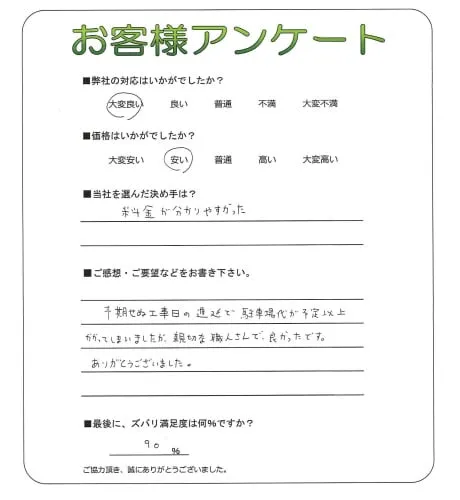 お客様アンケート
■弊社の対応はいかがでしたか？
大変良い 良い 普通 不満 大変不満
■価格はいかがでしたか？
大変安い 安い 普通 高い 大変高い
■当社を選んだ決め手は？
料金が分かりやすかった
■ご感想・ご要望などをお書き下さい。
予期せぬ工事日の遅延で駐車場代が予定以上
かかってしまいましたが、親切な職人さんで、良かったです。
ありがとうございました。
■最後に、ズバリ満足度は何％ですか？
90 ％
ご協力頂き、誠にありがとうございました。